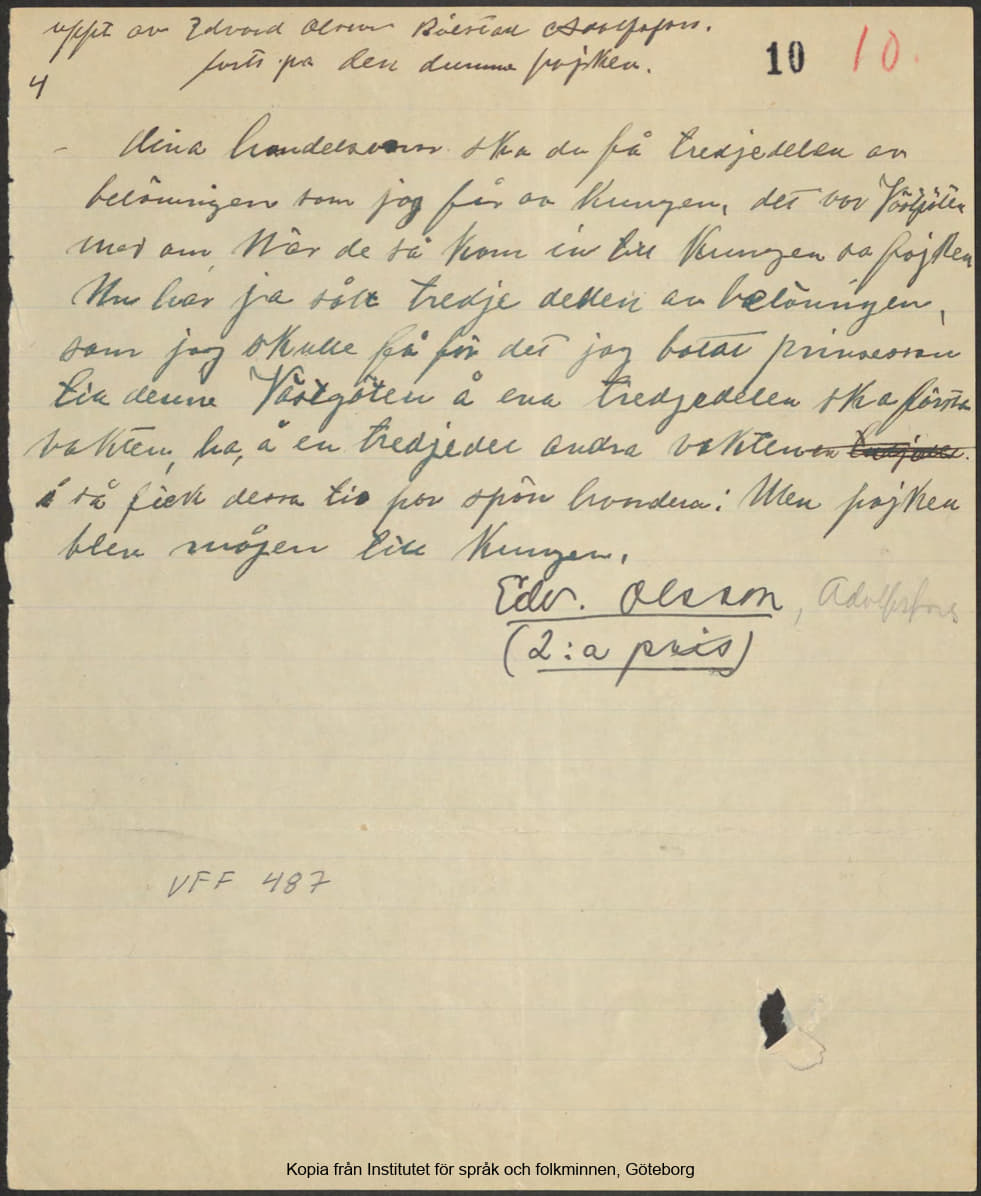 uppt av Edvard Olsson Adolfsfors.
forts på den dumma pojken.
10 10.
4
- dina handelsvaror ska du få tredjedelen av
belöningen som jog får av Kungen, det var Västgöten
med om, När de så kom in till Kungen sa pojken
Nu har ja sålt tredje delen av belöningen,
som jog skulle få för det jag botat prinsessan
till denne Västgöten å ena tredjedelen ska första
vakten, ha, å en tredjedel andra vakten
å så fick dessa tio par spön hvardera: Men pojken
blev mågen till Kungen.
Edv. Olsson, Adolfsfors
(2:a pris)
VFF 487
Kopia från Institutet för språk och folkminnen, Göteborg